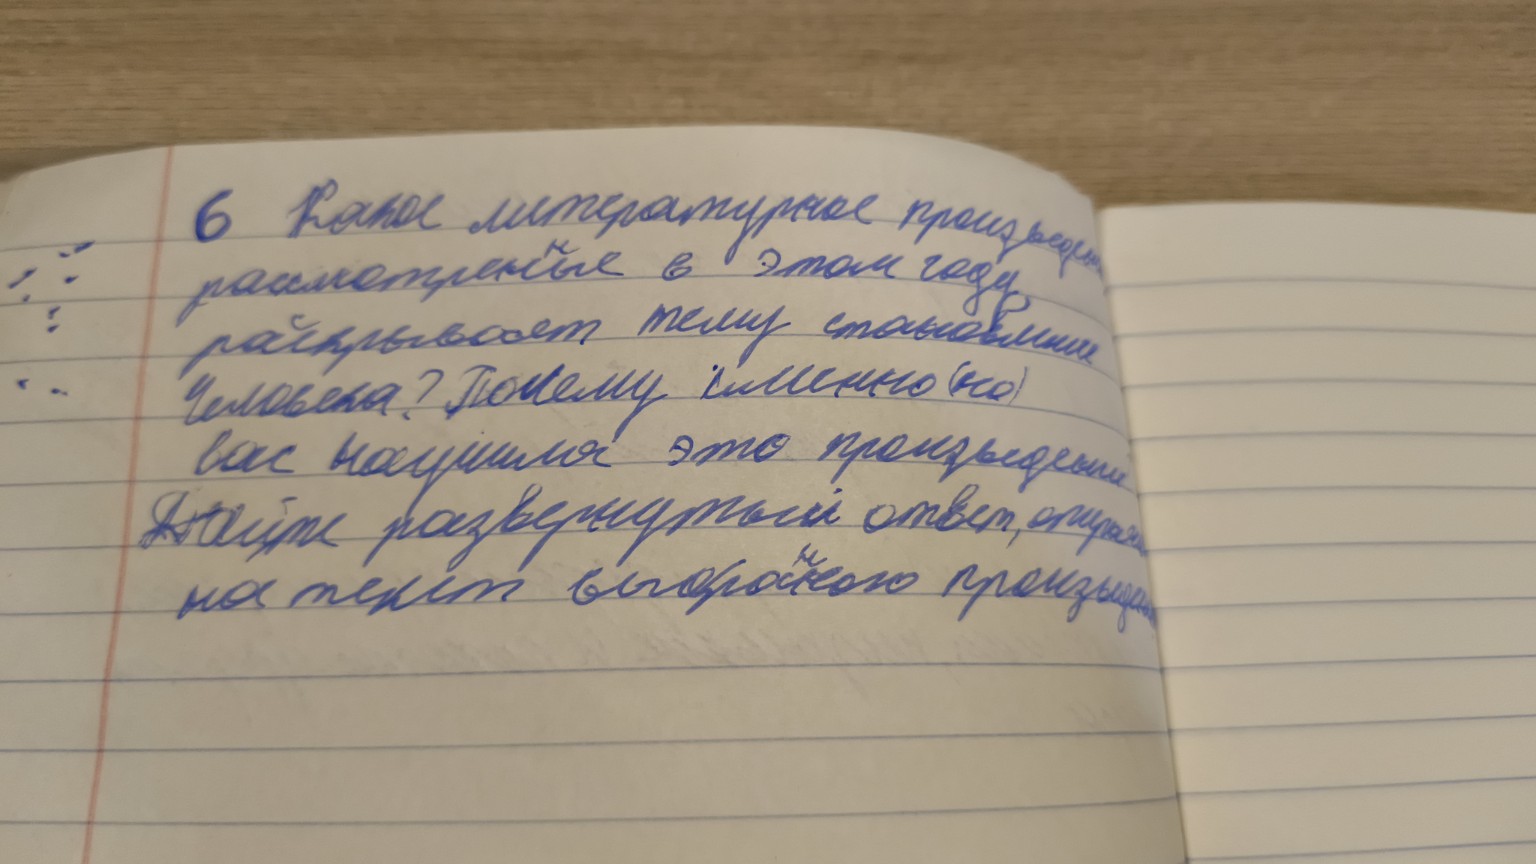 6 Какое литературное произведен
рассмотренные в этом году
раскрывает тему становление
Человека? Почему именно (на)
вас научила это произведение
Дайте развернутый ответ, опираяс
на текст выбранного произведен